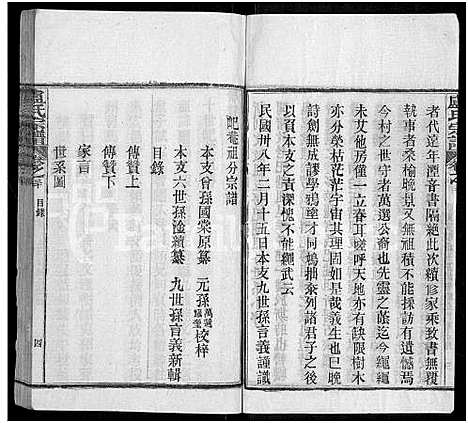 盧氏宗譜
者代遠年湮音書隔絶此次續修家乘無覆
執事者桑榆晚景又無祖積不能採訪有遺憾焉
今村之世守者萬選公裔也先靈之蔭迄今繩繩
未艾他房僅一立春耳嗟呼天地亦有缺限樹木
亦分榮枯茫茫宇宙其理固如是哉義生也巳晚
詩劍無成謬學鴉塗才同鳩拙忝列諸君子之後
以貢本支之資深愧不能繩武云
民國卅八年二月十五日本支九世孫言義謹識
記菴祖分宗譜
本支曾孫國棠原纂 元孫萬選校梓
本支六世孫愴續纂 九世孫言義新輯
目錄
傳贊上
傳贊下
家言
世系圖
盧氏宗譜
目錄
四